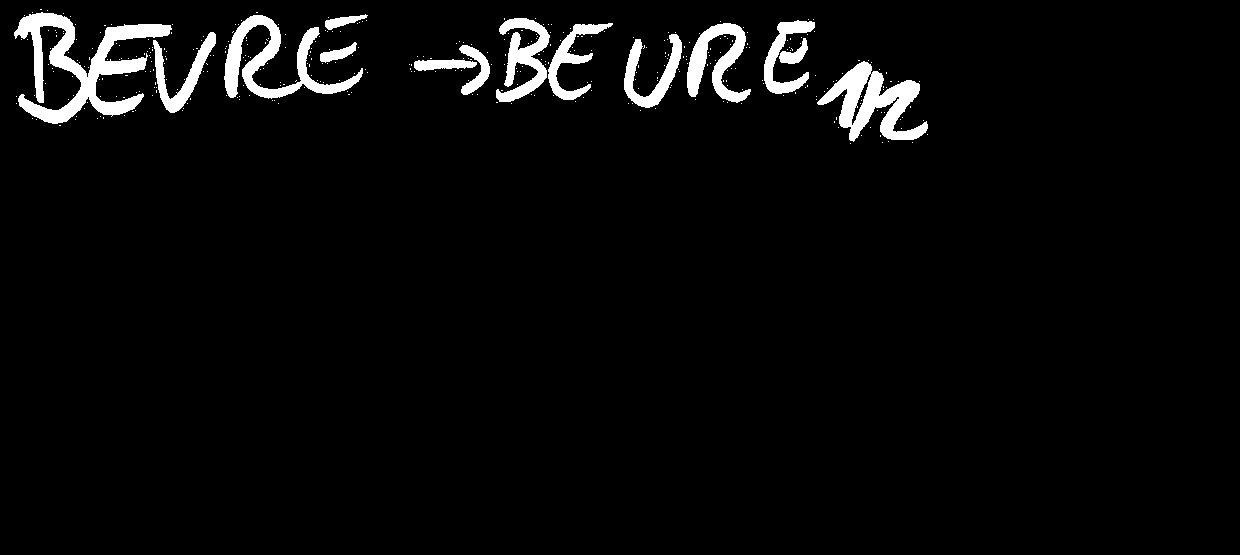 BEVRE → BEURE 1/2